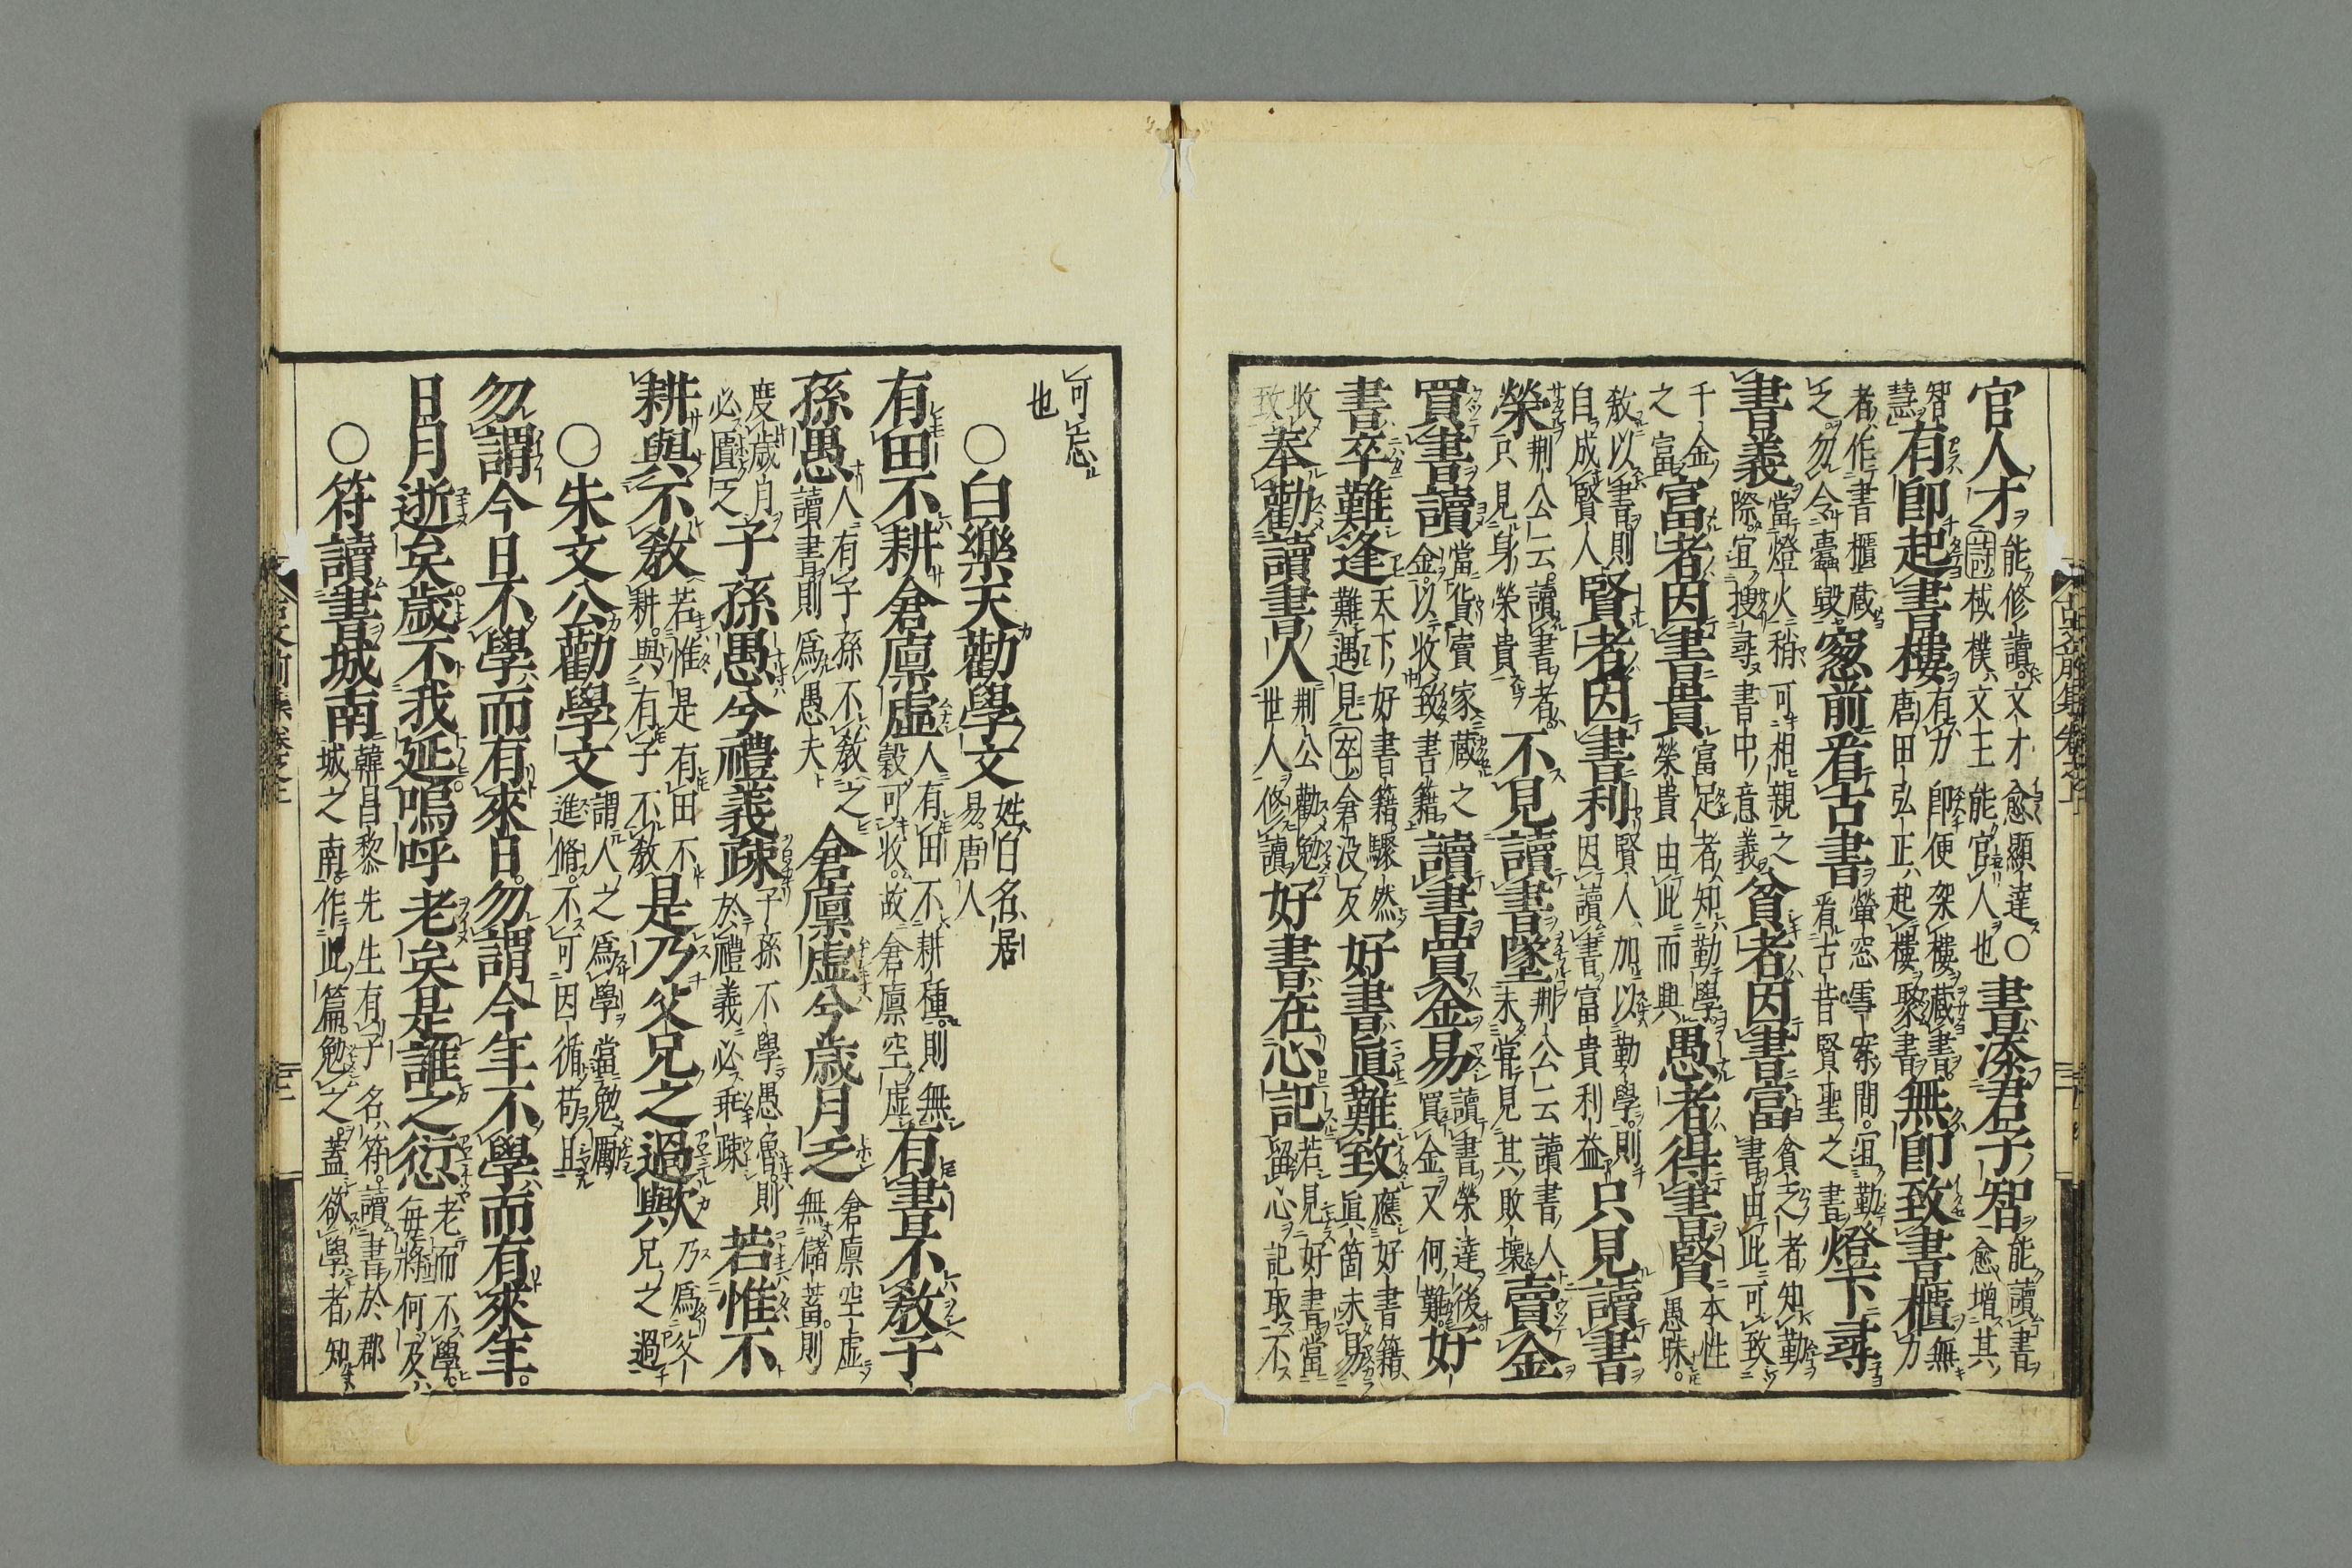 官人才能修讀文才愈顯達○詩棫樸文王能官人也書添君子智能讀書愈增其
智慧有即起書樓有力即便架樓藏書唐田弘正起樓聚書無即致書櫃無力
者作書櫃蔵之勿令蠹毀窓前看古書螢窓雪案間宜勤看古昔賢聖之書燈下尋
書義當燈火稍可相親之際宜搜尋書中意義貧者因書當貧之者知勤書由此可致
千金之富富者因書貴富足者知勤學榮貴由此而興愚者得書賢本性愚昧
教以書則自成賢人賢者因書利賢人加以勤學則因讀書富貴利益只見讀書
榮荊公云讀書者只見身榮貴不見讀書墜荊公云讀書人未嘗見其敗壞賣金
買書讀當貨賣家蔵之金以收致書籍讀書買金易讀書榮達後買金又何難好
書卒難逢天下好書籍驟然難遇見卒倉没反好書眞難致應好書籍眞箇未易
收致奉勸讀書人荊公勸勉世人修讀好書在心記若見好書當留心記取不
可忘也
○白樂天勸學文姓白名居易唐人
有田不耕倉廩虛人有田不耕種則無穀可收故倉廩空虛有書不敎子
孫愚人有子孫不敎之讀書則爲愚夫倉廩虛兮歳月乏倉廩空虛無儲蓄則
度歳月必匱乏子孫愚兮禮義疎子孫不學愚魯則於禮義必乖疎若惟不
耕與不敎若惟是有田不耕與有子不敎是乃父兄之過歟乃爲父兄之過
○朱文公勸學文謂人之爲學當勉厲進脩不可因循苟且
勿謂今日不學而有來日勿謂今年不學而有來年
日月逝矣歳不我延嗚呼老矣是誰之愆老而不學每將何及
○符讀書城南韓昌黎先生有子名符讀書於郡城之南作此篇勉之蓋欲學者知